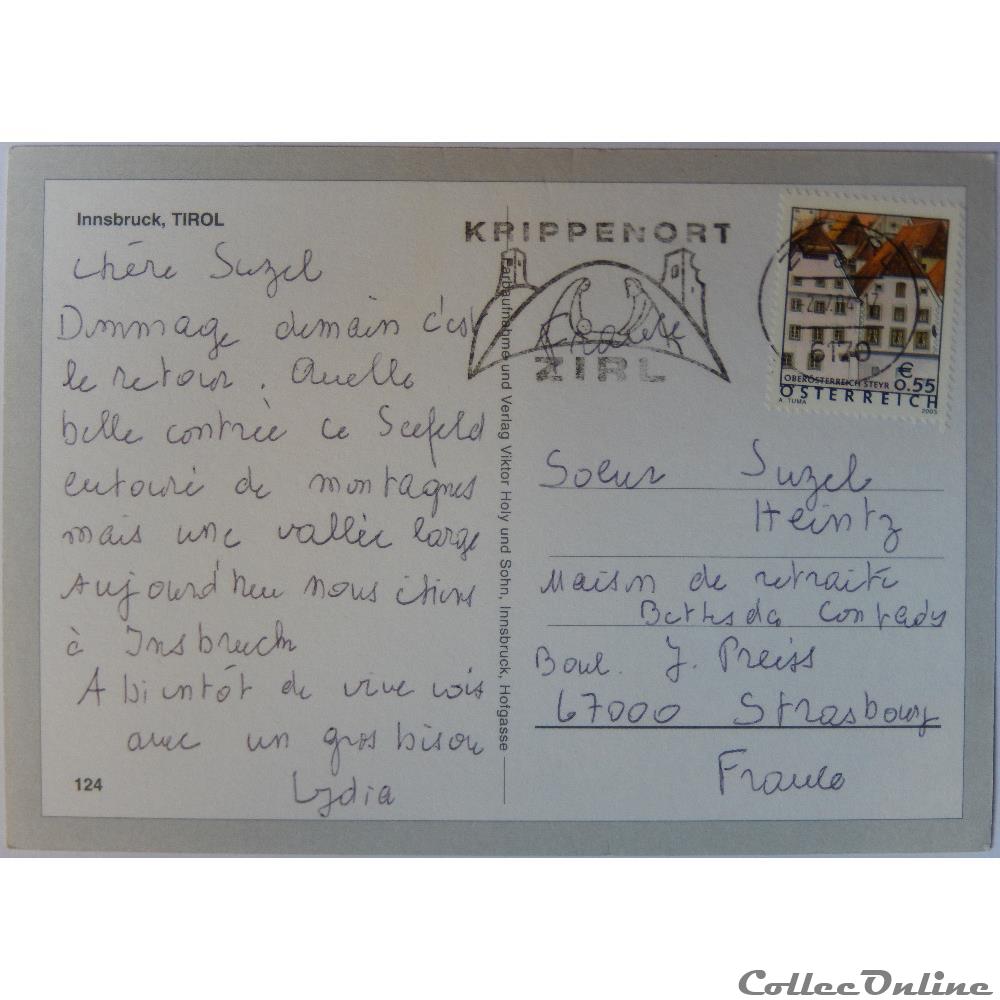 Innsbruck, TIROL
Chère Suzel
Dommage demain c'est
le retour. Quelle
belle contrée ce Seefeld
entouré de montagnes
mais une vallée large
Aujourd'heu nous étions
à Insbruck
A bientôt de vive vois
avec un gros bisou
Lydia
124
Farbaufnahme und Verlag Viktor Holy und Sohn, Innsbruck, Hofgasse
KRIPPENORT
ZIRL
6170
€
0.55
OBERÖSTERREICH STEYR
ÖSTERREICH
A. TUMA
2003
Soeur Suzel
Heintz
Maison de retraite
Bethesda Contades
Boul. J. Preiss
67000 Strasbourg
France
CollecOnline